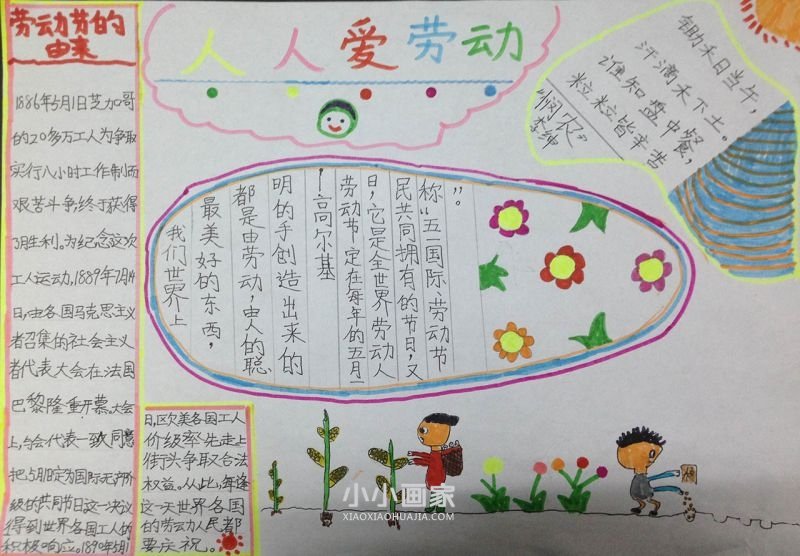 劳动节的
由来
1886年5月1日芝加哥
的20多万工人为争取
实行八小时工作制而
艰苦斗争,终于获得
了胜利。为纪念这次
工人运动,1889年7月14
日,由各国马克思主义
者召集的社会主义
者代表大会在法国
巴黎隆重开幕。大会
上,与会代表一致同意
把5月1日定为国际无产阶
级的共同节日这一决议
得到世界各国工人的
积极响应。1890年5月1
日,欧美各国工人
价级率先走上
街头争取合法
权益。从此,每逢
这一天世界各国
的劳动人民都
要庆祝。
人人爱劳动
锄禾日当午,
汗滴禾下土。
谁知盘中餐,
粒粒皆辛苦
“悯农”
李绅
我们世界上
最美好的东西,
都是由劳动,由人的聪
明的手创造出来的
—高尔基
劳动节定在每年的五月一
日,它是全世界劳动人
民共同拥有的节日,又
称“五一国际劳动节
”。
小小画家
XIAOXIAOHUAJIA.COM